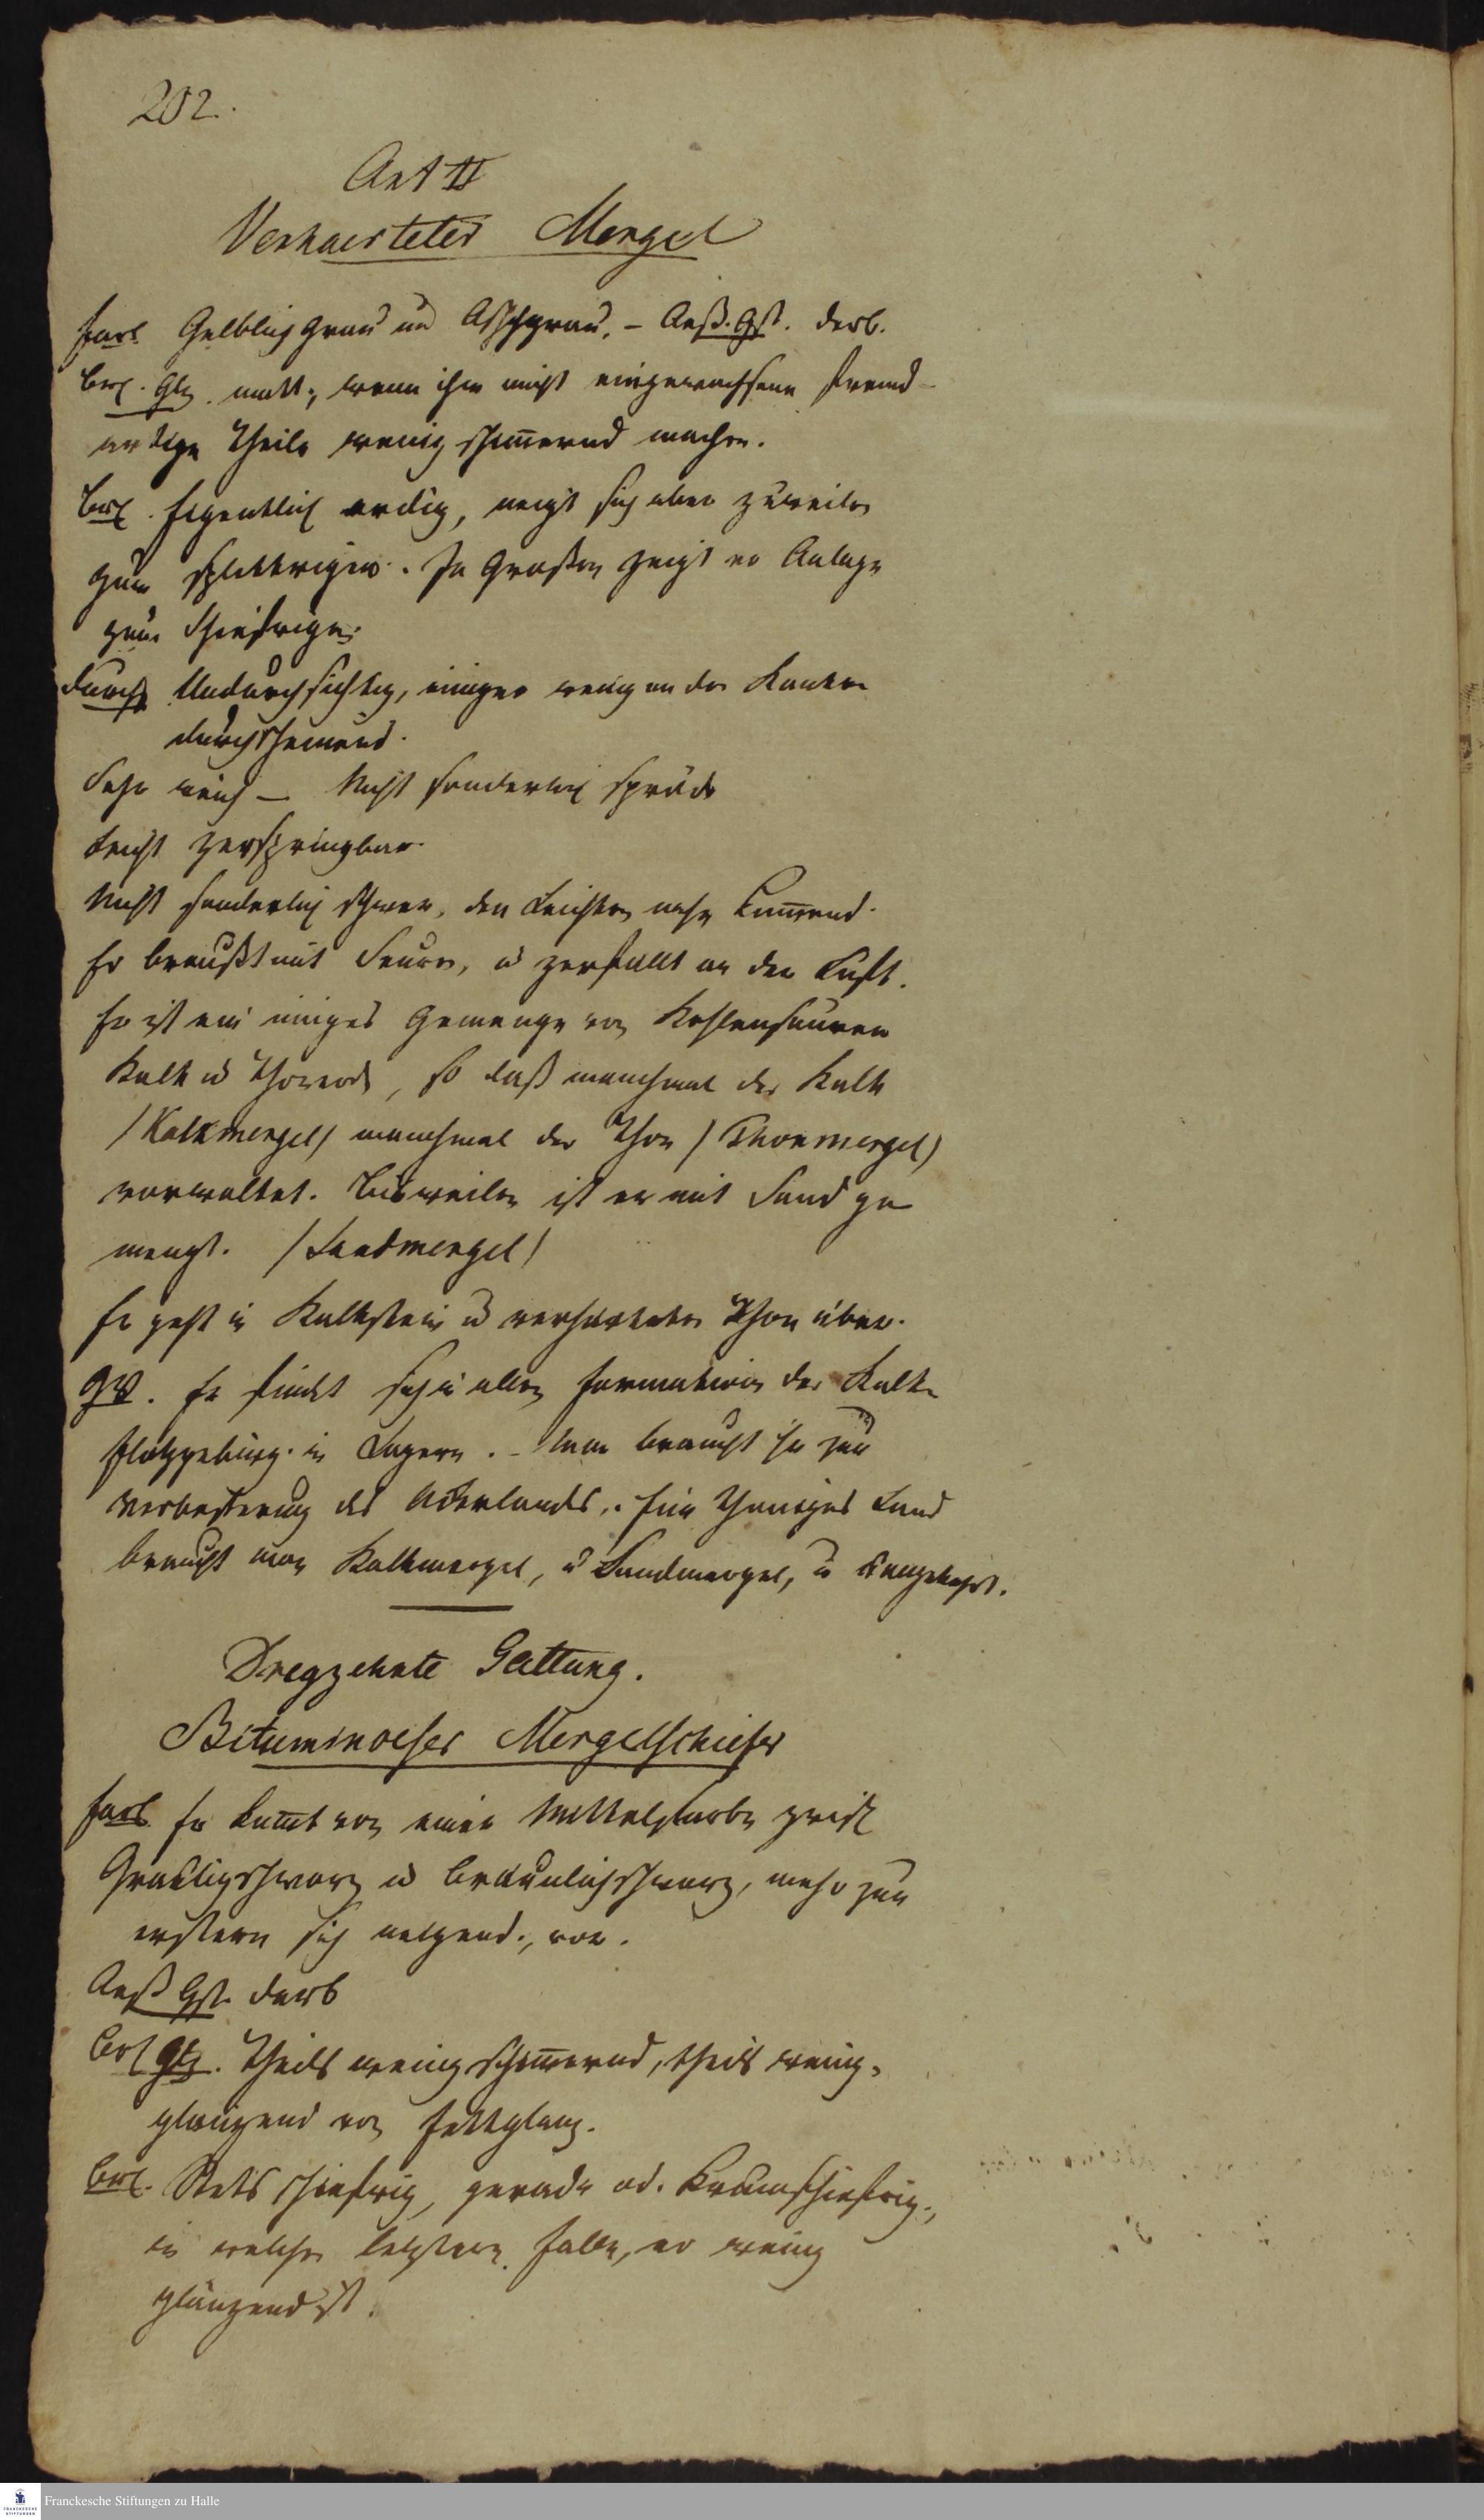 202.
Art II
Verhaerteter Mergel
Farb. Gelblichgrau und Aschgrau. – Aeß. Gst. derb.
Brch. Glz. matt, wenn ihn nicht eingewachsene fremd-
artige Theile wenig schim̄ernd machen.
Brch. Eigentlich erdig, neigt sich aber zuweilen
zum splittrigen. Im Großen zeigt er Anlage
zum Schiefrigen.
Durchs. Undurchsichtig, einiger wenig an den Kanten
durchscheinend.
Sehr weich – Nicht sonderlich spröde
Leicht zerspringbar.
Nicht sonderlich schwer, den Leichten nahe kom̄end.
Er braußt mit Säuren, u zerfällt an der Luft.
Er ist ein inniges Gemenge von Kohlensauren
Kalk u Thonerde, so daß manchmal der Kalk
/Kalkmergel/ manchmal der Thon /Thonmergel/
vorwaltet. Bisweilen ist er mit Sand ge
mengt. /Sandmergel/
Er geht in Kalkstein u verhärteten Thon über.
Er findet sich in allen Formationen der Kalk-
flötzgebürg. in Lagern. – Man braucht ihn zur
Verbesserung des Ackerlands. Für thoniges Land
braucht man Kalkmergel, u Sandmergel, u umgekehrt.
Dreyzehnte Gattung.
Bituminoeser Mergelschiefer
Farb. Er kom̄t von einer Mittelfarbe zwisch
Graulichschwarz u bräunlichschwarz, mehr zur
erstern sich neigend, vor.
Aeß Gst. derb
Brch Glz. Theils wenig schim̄ernd, theils wenig-
glänzend von Fettglanz.
Brch. Stets schiefrig, gerade od. krum̄schiefrig,
in welchen letztern Falle, er wenig
glänzend ist.
Franckesche Stiftungen zu Halle